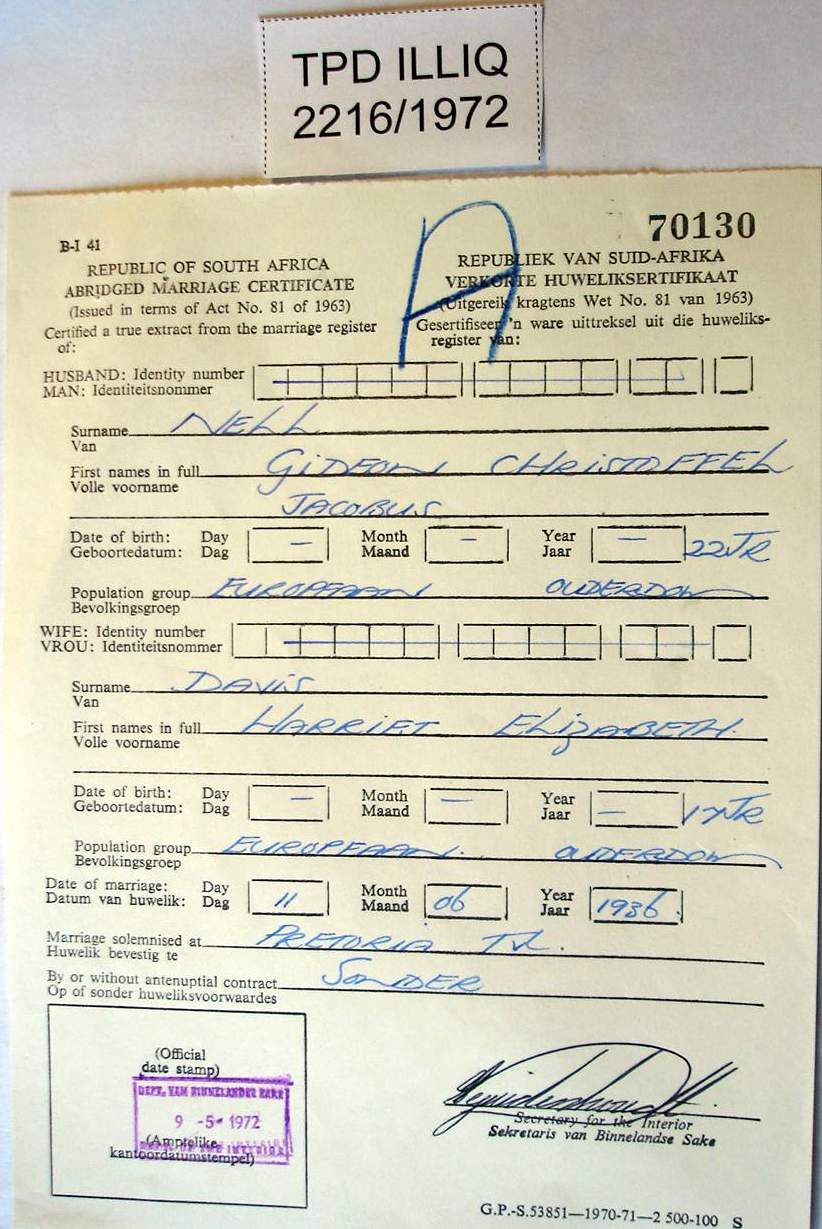 TPD ILLIQ
2216/1972
A
70130
B-I 41
REPUBLIC OF SOUTH AFRICA
ABRIDGED MARRIAGE CERTIFICATE
(Issued in terms of Act No. 81 of 1963)
Certified a true extract from the marriage register
of:
REPUBLIEK VAN SUID-AFRIKA
VERKORTE HUWELIKSERTIFIKAAT
(Uitgereik kragtens Wet No. 81 van 1963)
Gesertifiseer 'n ware uittreksel uit die huweliks-
register van:
HUSBAND: Identity number
MAN: Identiteitsnommer
Surname NELL
Van
First names in full GIDEON CHRISTOFFEL
Volle voorname
JACOBUS
Date of birth: Day – Month – Year – 22 JR
Geboortedatum: Dag Maand Jaar
Population group EUROPEAAN OUDERDOM
Bevolkingsgroep
WIFE: Identity number
VROU: Identiteitsnommer
Surname DAVIS
Van
First names in full HARRIET ELIZABETH.
Volle voorname
Date of birth: Day – Month – Year – 17 JR
Geboortedatum: Dag Maand Jaar
Population group EUROPEAAN. OUDERDOM
Bevolkingsgroep
Date of marriage: Day 11 Month 06 Year 1936.
Datum van huwelik: Dag Maand Jaar
Marriage solemnised at PRETORIA TVL.
Huwelik bevestig te
By or without antenuptial contract SONDER
Op of sonder huweliksvoorwaardes
(Official
date stamp)
DEPT. VAN BINNELANDSE SAKE
9 -5- 1972
(Amptelike
kantoordatumstempel)
Secretary for the Interior
Sekretaris van Binnelandse Sake
G.P.-S.53851—1970-71—2 500-100 S